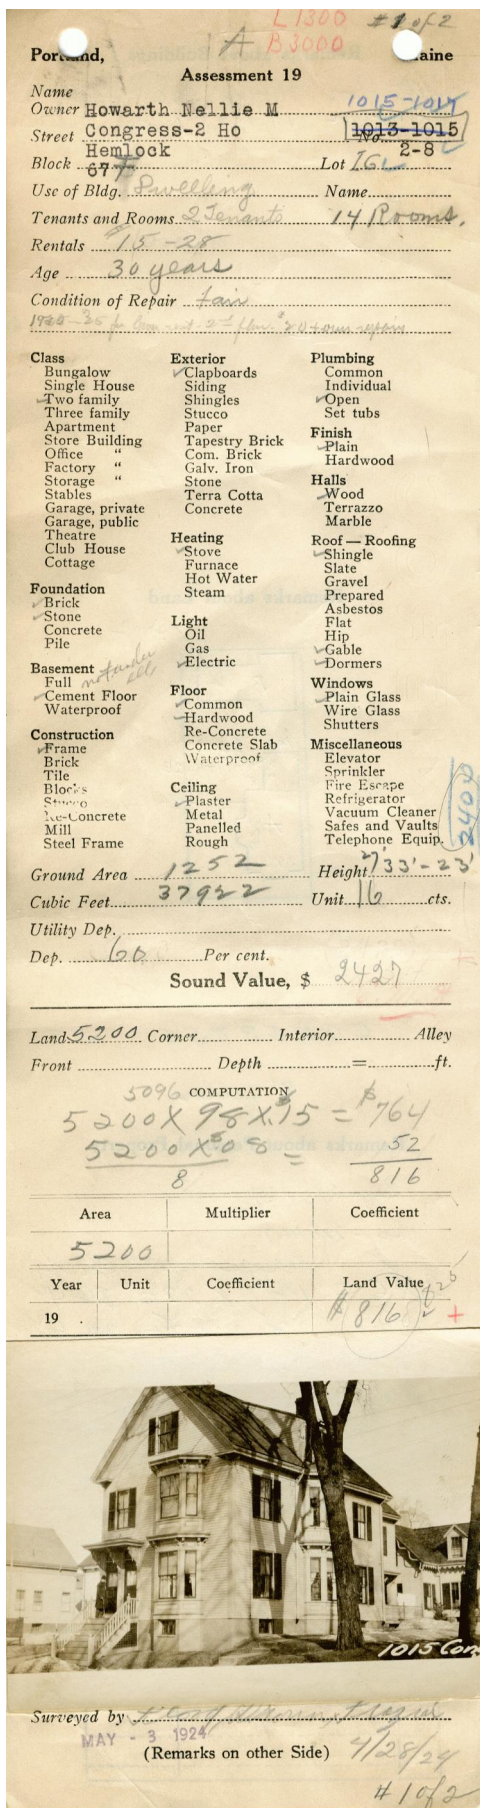 L 1300 #1 of 2
A B 3000
Portland, Maine
Assessment 19
Name
Owner Howarth Nellie M 1015-1017
Street Congress-2 Ho No. 1013-1015
Hemlock 2-8
Block 67 F Lot 16
Use of Bldg. Dwelling Name
Tenants and Rooms 2 Tenants 14 Rooms.
Rentals $15-28
Age 30 years
Condition of Repair Fair
Class
Bungalow
Single House
Two family
Three family
Apartment
Store Building
Office "
Factory "
Storage "
Stables
Garage, private
Garage, public
Theatre
Club House
Cottage
Foundation
Brick
Stone
Concrete
Pile
Basement
Full not under ell
Cement Floor
Waterproof
Construction
Frame
Brick
Tile
Blocks
Stucco
Re-Concrete
Mill
Steel Frame
Exterior
Clapboards
Siding
Shingles
Stucco
Paper
Tapestry Brick
Com. Brick
Galv. Iron
Stone
Terra Cotta
Concrete
Heating
Stove
Furnace
Hot Water
Steam
Light
Oil
Gas
Electric
Floor
Common
Hardwood
Re-Concrete
Concrete Slab
Waterproof
Ceiling
Plaster
Metal
Panelled
Rough
Plumbing
Common
Individual
Open
Set tubs
Finish
Plain
Hardwood
Halls
Wood
Terrazzo
Marble
Roof — Roofing
Shingle
Slate
Gravel
Prepared
Asbestos
Flat
Hip
Gable
Dormers
Windows
Plain Glass
Wire Glass
Shutters
Miscellaneous
Elevator
Sprinkler
Fire Escape
Refrigerator
Vacuum Cleaner
Safes and Vaults
Telephone Equip.
2400
Ground Area 1252 Height 27' 33'-23'
Cubic Feet 37922 Unit 16 cts.
Utility Dep.
Dep. 60 Per cent.
Sound Value, $ 2427
Land 5200 Corner Interior Alley
Front Depth = ft.
5096 COMPUTATION
5200 X 98 X 15 = $764
5200 X 08 = 52
8 816
Area Multiplier Coefficient
5200
Year Unit Coefficient Land Value
19 . $816 +
1015 Con
Surveyed by
MAY - 3 1924
(Remarks on other Side) 4/28/24
#1 of 2